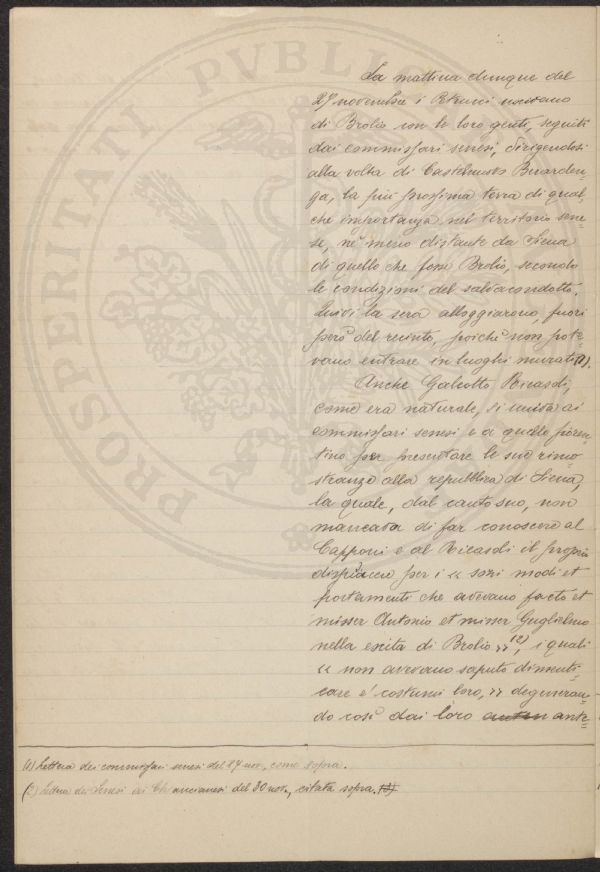 La mattina dunque del
27 novembre i Petrucci uscivano
di Brolio con le loro genti, seguiti
dai commissari senesi, dirigendosi
alla volta di Castelnuovo Berarden-
ga, la più prossima terra di qual-
che importanza nel territorio sene-
se, nè meno distante da Siena
di quello che fosse Brolio, secondo
le condizioni del salvacondotto.
Quivi la sera alloggiarono, fuori
però del recinto, poichè non pote-
vano entrare in luoghi murati (1).
Anche Galeotto Ricasoli,
come era naturale, si univa ai
commissari senesi e a quello fioren-
tino per presentare le sue rimo-
stranze alla repubblica di Siena,
la quale, dal canto suo, non
mancava di far conoscere al
Capponi e al Ricasoli il proprio
dispiacere per i « sozi modi et
portamenti che avevano facto et
misser Antonio et misser Guglielmo
nella escita di Brolio » (2), i quali
« non avevano saputo dimenti-
care e' costumi loro, » degeneran-
do così dai loro ante-
(1) Lettera dei commissari senesi del 27 nov., come sopra.
(2) Lettera dei Senesi ai del 30 nov., citata sopra. (3)
PROSPERITATI PVBLIC